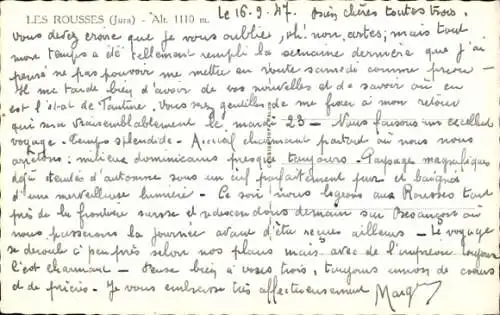 LES ROUSSES (Jura) - Alt. 1110 m.
Le 16.9.47. Mes chères toutes trois,
Vous devez croire que je vous oublie, oh! non, certes; mais tout
mon temps a été tellement rempli la semaine dernière que j'ai
pensé ne pas pouvoir me mettre en route samedi comme prévu -
Il me tarde bien d'avoir de vos nouvelles et de savoir où en
est l'état de Tantine. Vous serez gentilles de me fixer à mon retour
qui sera vraisemblablement le mardi 23 - Nous faisons un excellent
voyage - Temps splendide - Accueil charmant partout où nous nous
arrêtons: milieux dominicains presque toujours - Paysages magnifiques
déjà teintés d'automne sous un ciel parfaitement pur et baignés
d'une merveilleuse lumière - Ce soir nous logeons aux Rousses tout
près de la frontière suisse et redescendons demain sur Besançon où
nous passerons la journée avant d'être reçues ailleurs - Le voyage
se déroule à peu près selon nos plans mais avec de l'imprévu toujours
C'est charmant - Pense bien à vous trois, toujours union de cœurs
et de prières - Je vous embrasse très affectueusement